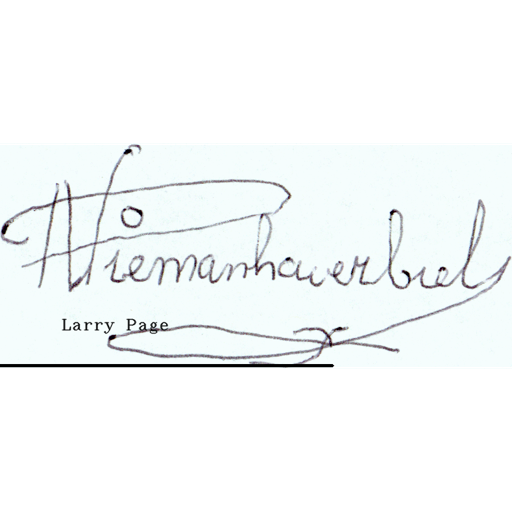 Niemanhaverbiel
Larry Page